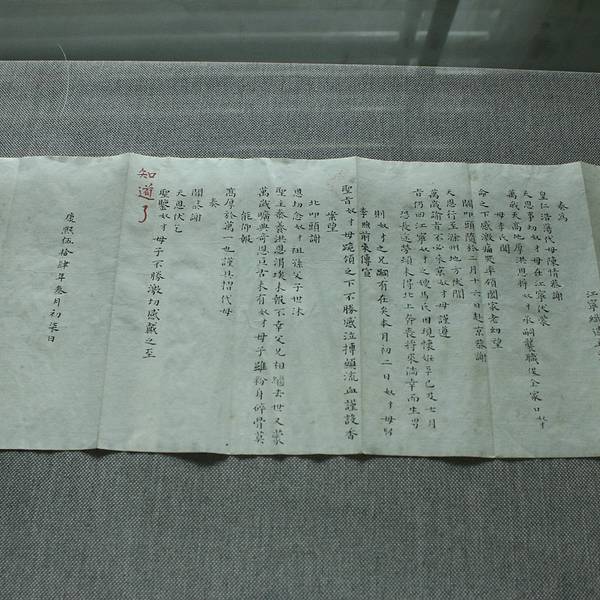 江寧織造
奏為
皇仁浩蕩代母陳情恭謝
天恩事切奴才母在江寧伏蒙
萬歲天高地厚洪恩將奴才承嗣襲職保全家口奴才
母李氏聞
命之下感激痛哭率領闔家老幼望
闕叩頭隨於二月十六日赴京恭謝
天恩行至滁州地方伏聞
萬歲諭旨不必來京奴才母謹遵
旨仍回江寧奴才之嫂馬氏因現懷妊孕已及七月
恐長途勞頓未得北上奔喪將來倘幸而生男
則奴才之兄嗣有在矣本月初二日奴才母舅
李煦前來傳宣
聖旨奴才母跪領之下不勝感泣搏顙流血謹設香
案望
北叩頭謝
恩切念奴才祖孫父子世沐
聖主豢養洪恩涓埃未報不幸父兄相繼去世又蒙
萬歲曠典奇恩亘古未有奴才母子雖粉身碎骨莫
能仰報
高厚於萬一也謹具摺代母
奏
聞恭謝
天恩伏乞
聖鑒奴才母子不勝激切感戴之至
知道了
康熙伍拾肆年叁月初柒日